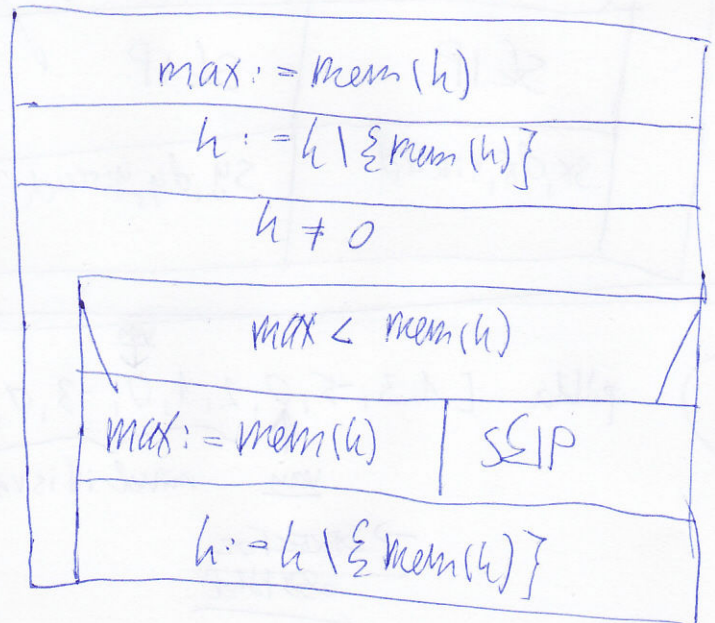 max := mem(h)
h := h \ {mem(h)}
h ≠ 0
max < mem(h)
max := mem(h)
SKIP
h := h \ {mem(h)}